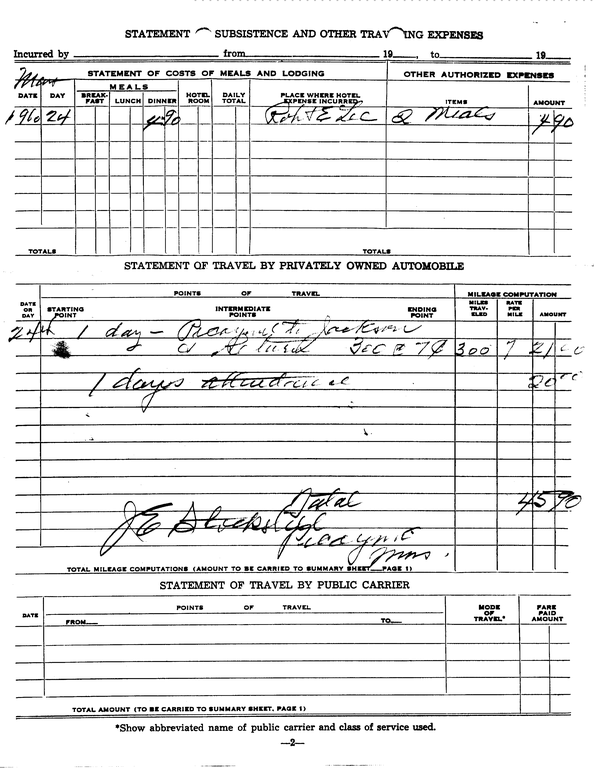 STATEMENT SUBSISTENCE AND OTHER TRAV ING EXPENSES
Incurred by from 19 , to 19
STATEMENT OF COSTS OF MEALS AND LODGING OTHER AUTHORIZED EXPENSES
DATE DAY MEALS BREAK-FAST LUNCH DINNER HOTEL ROOM DAILY TOTAL PLACE WHERE HOTEL EXPENSE INCURRED ITEMS AMOUNT
24 4.90 2 Meals 4 90
TOTALS TOTALS
STATEMENT OF TRAVEL BY PRIVATELY OWNED AUTOMOBILE
POINTS OF TRAVEL MILEAGE COMPUTATION
DATE OR DAY STARTING POINT INTERMEDIATE POINTS ENDING POINT MILES TRAV-ELED RATE PER MILE AMOUNT
24th 1 day - Picayune to Jackson
& Return 300 @ 7¢ 300 7 21 00
1 days attendance 20 00
Total 45 90
Picayune
Miss.
TOTAL MILEAGE COMPUTATIONS (AMOUNT TO BE CARRIED TO SUMMARY SHEET PAGE 1)
STATEMENT OF TRAVEL BY PUBLIC CARRIER
DATE POINTS OF TRAVEL MODE OF TRAVEL* FARE PAID AMOUNT
FROM TO
TOTAL AMOUNT (TO BE CARRIED TO SUMMARY SHEET, PAGE 1)
*Show abbreviated name of public carrier and class of service used.
—2—